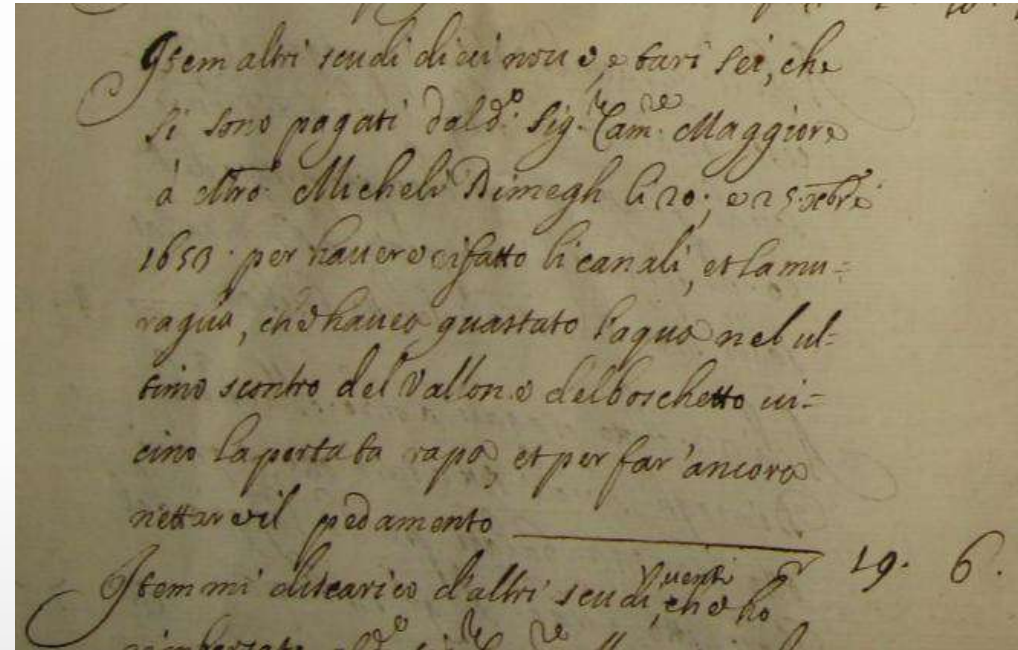 Item altri scudi dieci nove, e tarì sei, che
si sono pagati dal d.º Sig.re Cam.re Maggiore
à Mro Micheli Dimegh li 20; e 25 xbre
1653 per havere rifatto li canali, et la mu=
raglia, che havea guastato l'aqua nel ul=
timo scontro del Vallone del boschetto vi=
cino la porta ta rapa, et per far' ancora
nettare il pedamento 19. 6.
Item mi discarico d'altri scudi venti che ho